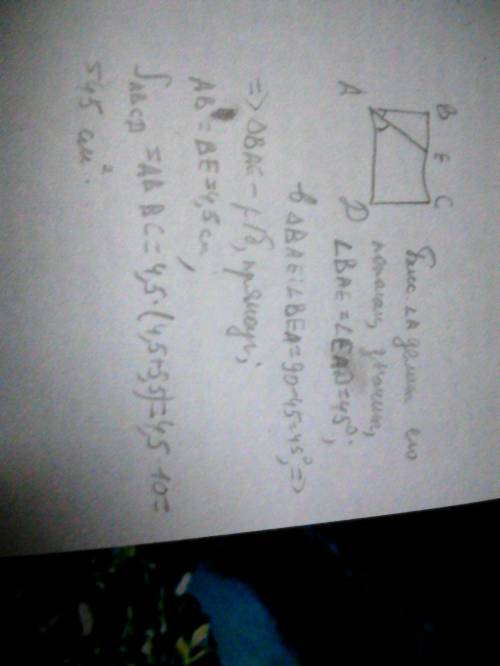 B E C
A D
Бис ∠A делит его
пополам, значит,
∠BAE = ∠EAD = 45°.
в △BAE: ∠BEA = 90-45=45°, =>
=> △BAE - р/б, прямоуг,
AB = BE = 4,5 см,
S ABCD = AB BC = 4,5 · (4,5+5,5) = 4,5 · 10 =
545 см².